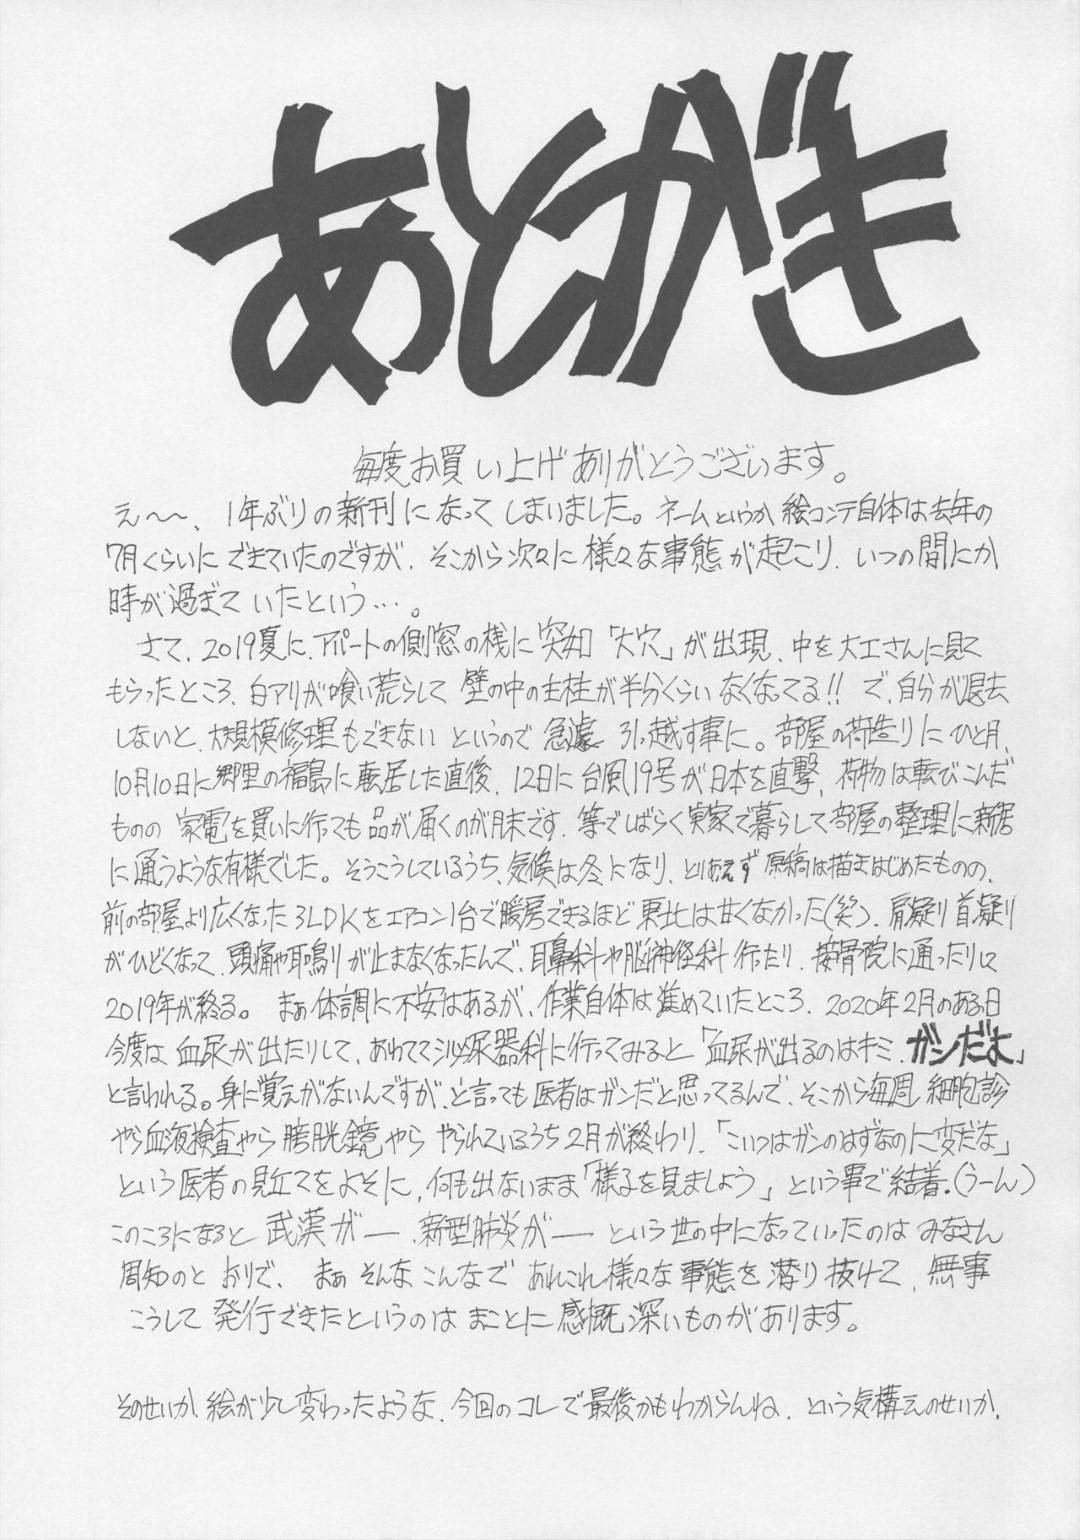 あとがき
毎度お買い上げありがとうございます。
え〜〜、1年ぶりの新刊になってしまいました。ネームというか絵コンテ自体は去年の
7月くらいにできていたのですが、そこから次々に様々な事態が起こり、いつの間にか
時が過ぎていたという…。
さて、2019夏に、アパートの側窓の桟に突如「大穴」が出現、中を大工さんに見て
もらったところ、白アリが喰い荒らして壁の中の主柱が半分くらいなくなってる!!で、自分が退去
しないと、大規模修理もできないというので急遽引っ越す事に。部屋の荷造りにひと月、
10月10日に郷里の福島に転居した直後、12日に台風19号が日本を直撃、荷物は転びこんだ
ものの家電を買いに行っても品が届くのが月末です、等でしばらく実家で暮らして部屋の整理に新居
に通うような有様でした。そうこうしているうち、気候は冬になり、とりあえず原稿は描きはじめたものの、
前の部屋より広くなった3LDKをエアコン1台で暖房できるほど東北は甘くなかった(笑)、肩凝り首凝り
がひどくなって、頭痛や耳鳴りが止まなくなったんで、耳鼻科や脳神経科行ったり、接骨院に通ったりして
2019年が終る。まぁ体調に不安はあるが、作業自体は進めていたところ、2020年2月のある日
今度は血尿が出たりして、あわてて泌尿器科に行ってみると「血尿が出るのはキミ、ガンだよ」
と言われる。身に覚えがないんですが、と言っても医者はガンだと思ってるんで、そこから毎週細胞診
やら血液検査やら膀胱鏡やらやられているうち2月が終わり、「こいつはガンのはずなのに変だな」
という医者の見立てをよそに、何も出ないまま「様子を見ましょう」という事で結着。(うーん)
このころになると武漢がー、新型肺炎がーという世の中になっていったのはみなさん
周知のとおりで、まぁそんなこんなであれこれ様々な事態を潜り抜けて、無事
こうして発行できたというのはまことに感慨深いものがあります。
そのせいか絵が少し変わったような、今回のコレで最後かもわからんね、という気構えのせいか、